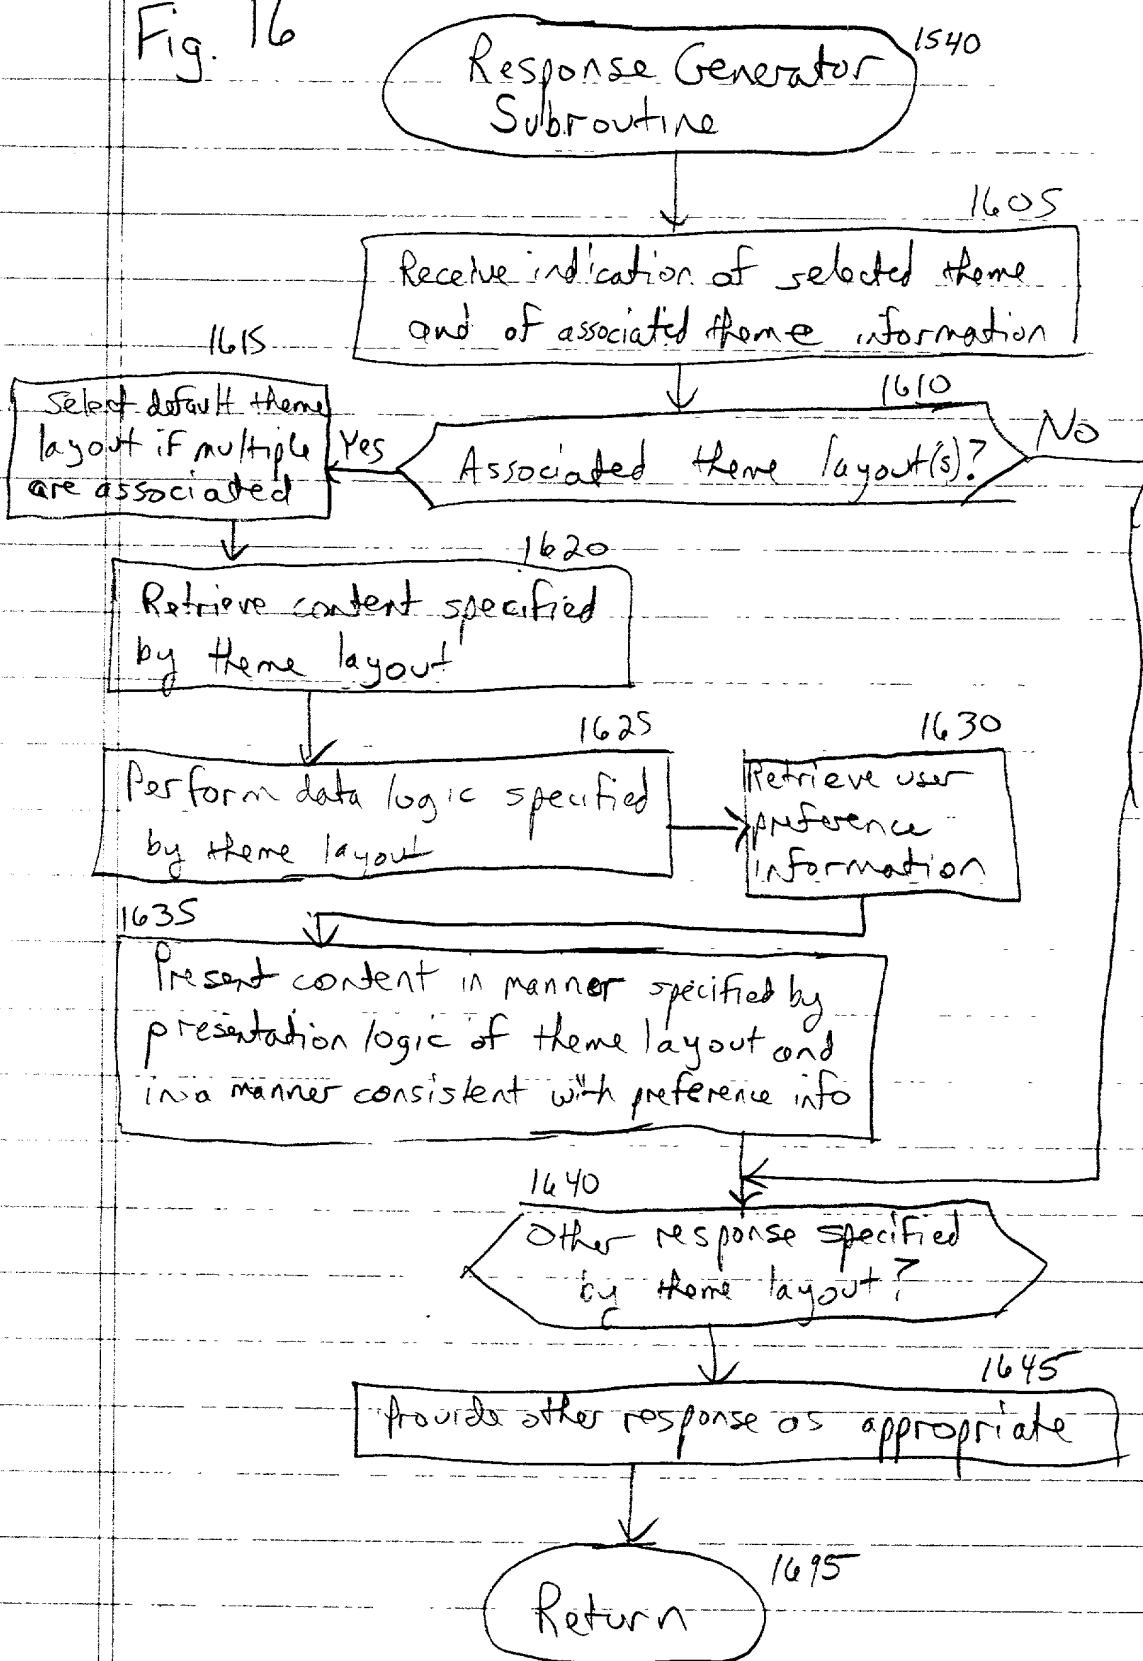 Fig. 16
Response Generator
Subroutine
1540
1605
Receive indication of selected theme
and of associated theme information
1610
Associated theme layout(s)?
Yes
No
1615
Select default theme
layout if multiple
are associated
1620
Retrieve content specified
by theme layout
1625
Perform data logic specified
by theme layout
1630
Retrieve user
preference
information
1635
Present content in manner specified by
presentation logic of theme layout and
in a manner consistent with preference info
1640
Other response specified
by theme layout?
1645
Provide other response as appropriate
1695
Return